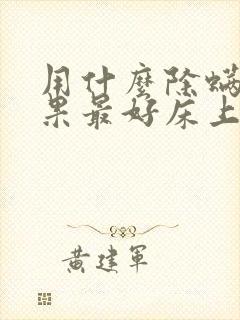 用什麼除螨
果最好床上
黃建軍